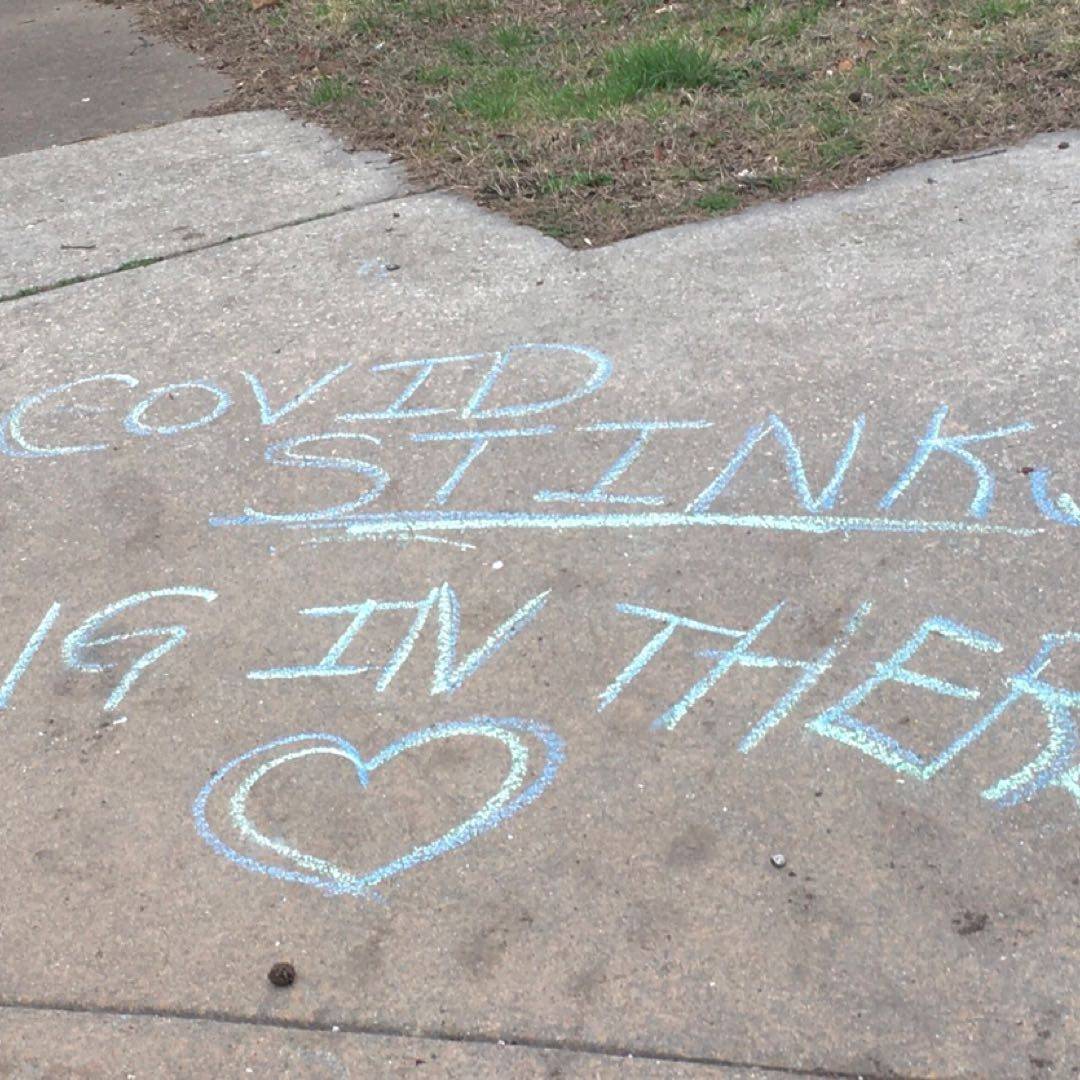 COVID
STINK
IG IN THER